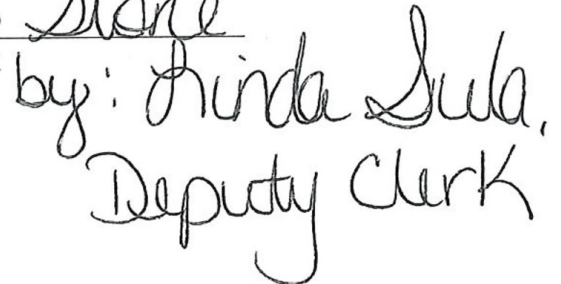 Stone
by: Linda Sula,
Deputy Clerk